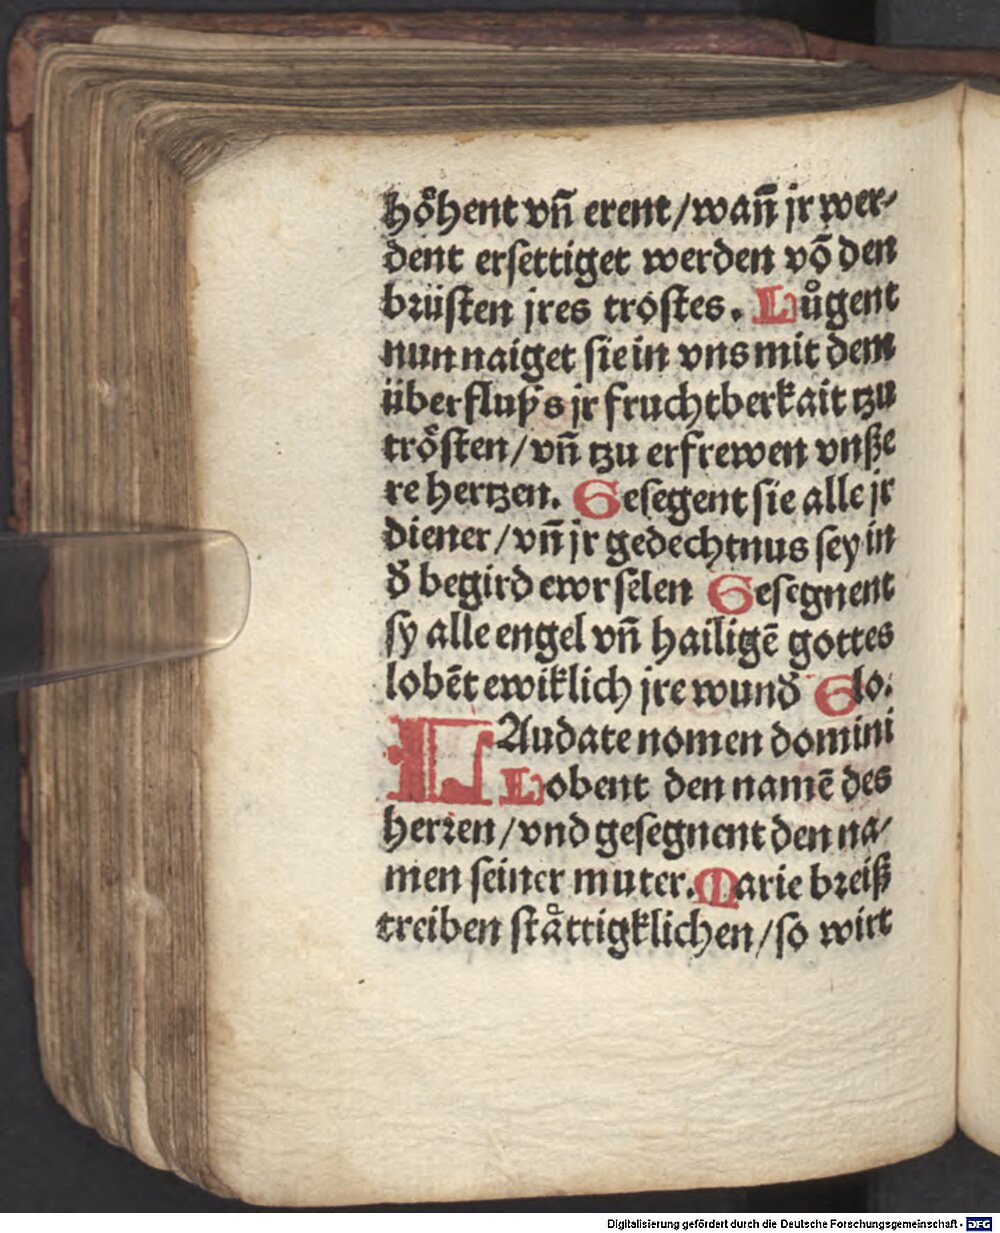 hoͤhent vn̄ erent/wan̄ jr wer-
dent ersettiget werden vō den
brüsten jres trostes. Luͦgent
nun naiget sie in vns mit dem
überfluß s jr fruchtberkait tzu
troͤsten/vn̄ tzu erfrewen vnße
re hertzen. Gesegent sie alle jr
diener/vn̄ jr gedechtnus sey in
đ begird ewr selen Gesegnent
sy alle engel vn̄ hailigē gottes
lobēt ewiklich jre wunđ Glo.
LAudate nomen domini
Lobent den namē des
herren/vnd gesegnent den na-
men seiner muter. Marie breiß
treiben staͤttigklichen/so wirt
Digitalisierung gefördert durch die Deutsche Forschungsgemeinschaft - DFG